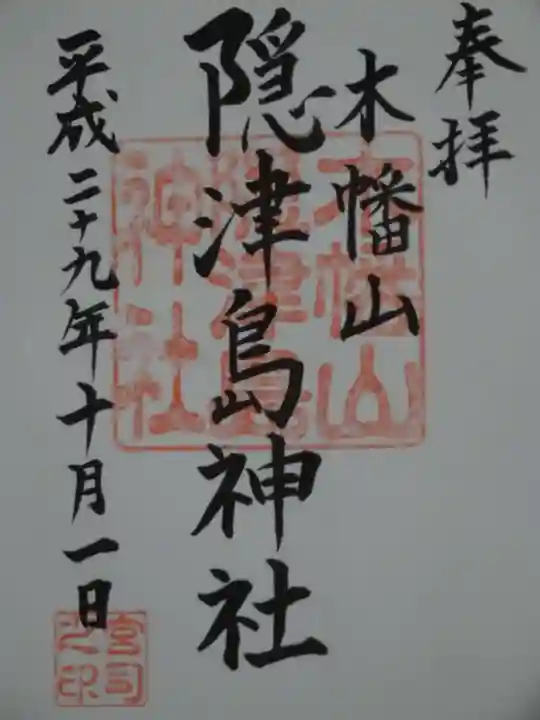 奉拝
木幡山
隠津島神社
平成二十九年十月一日
木幡山
隠津島
神社
宮司
之印